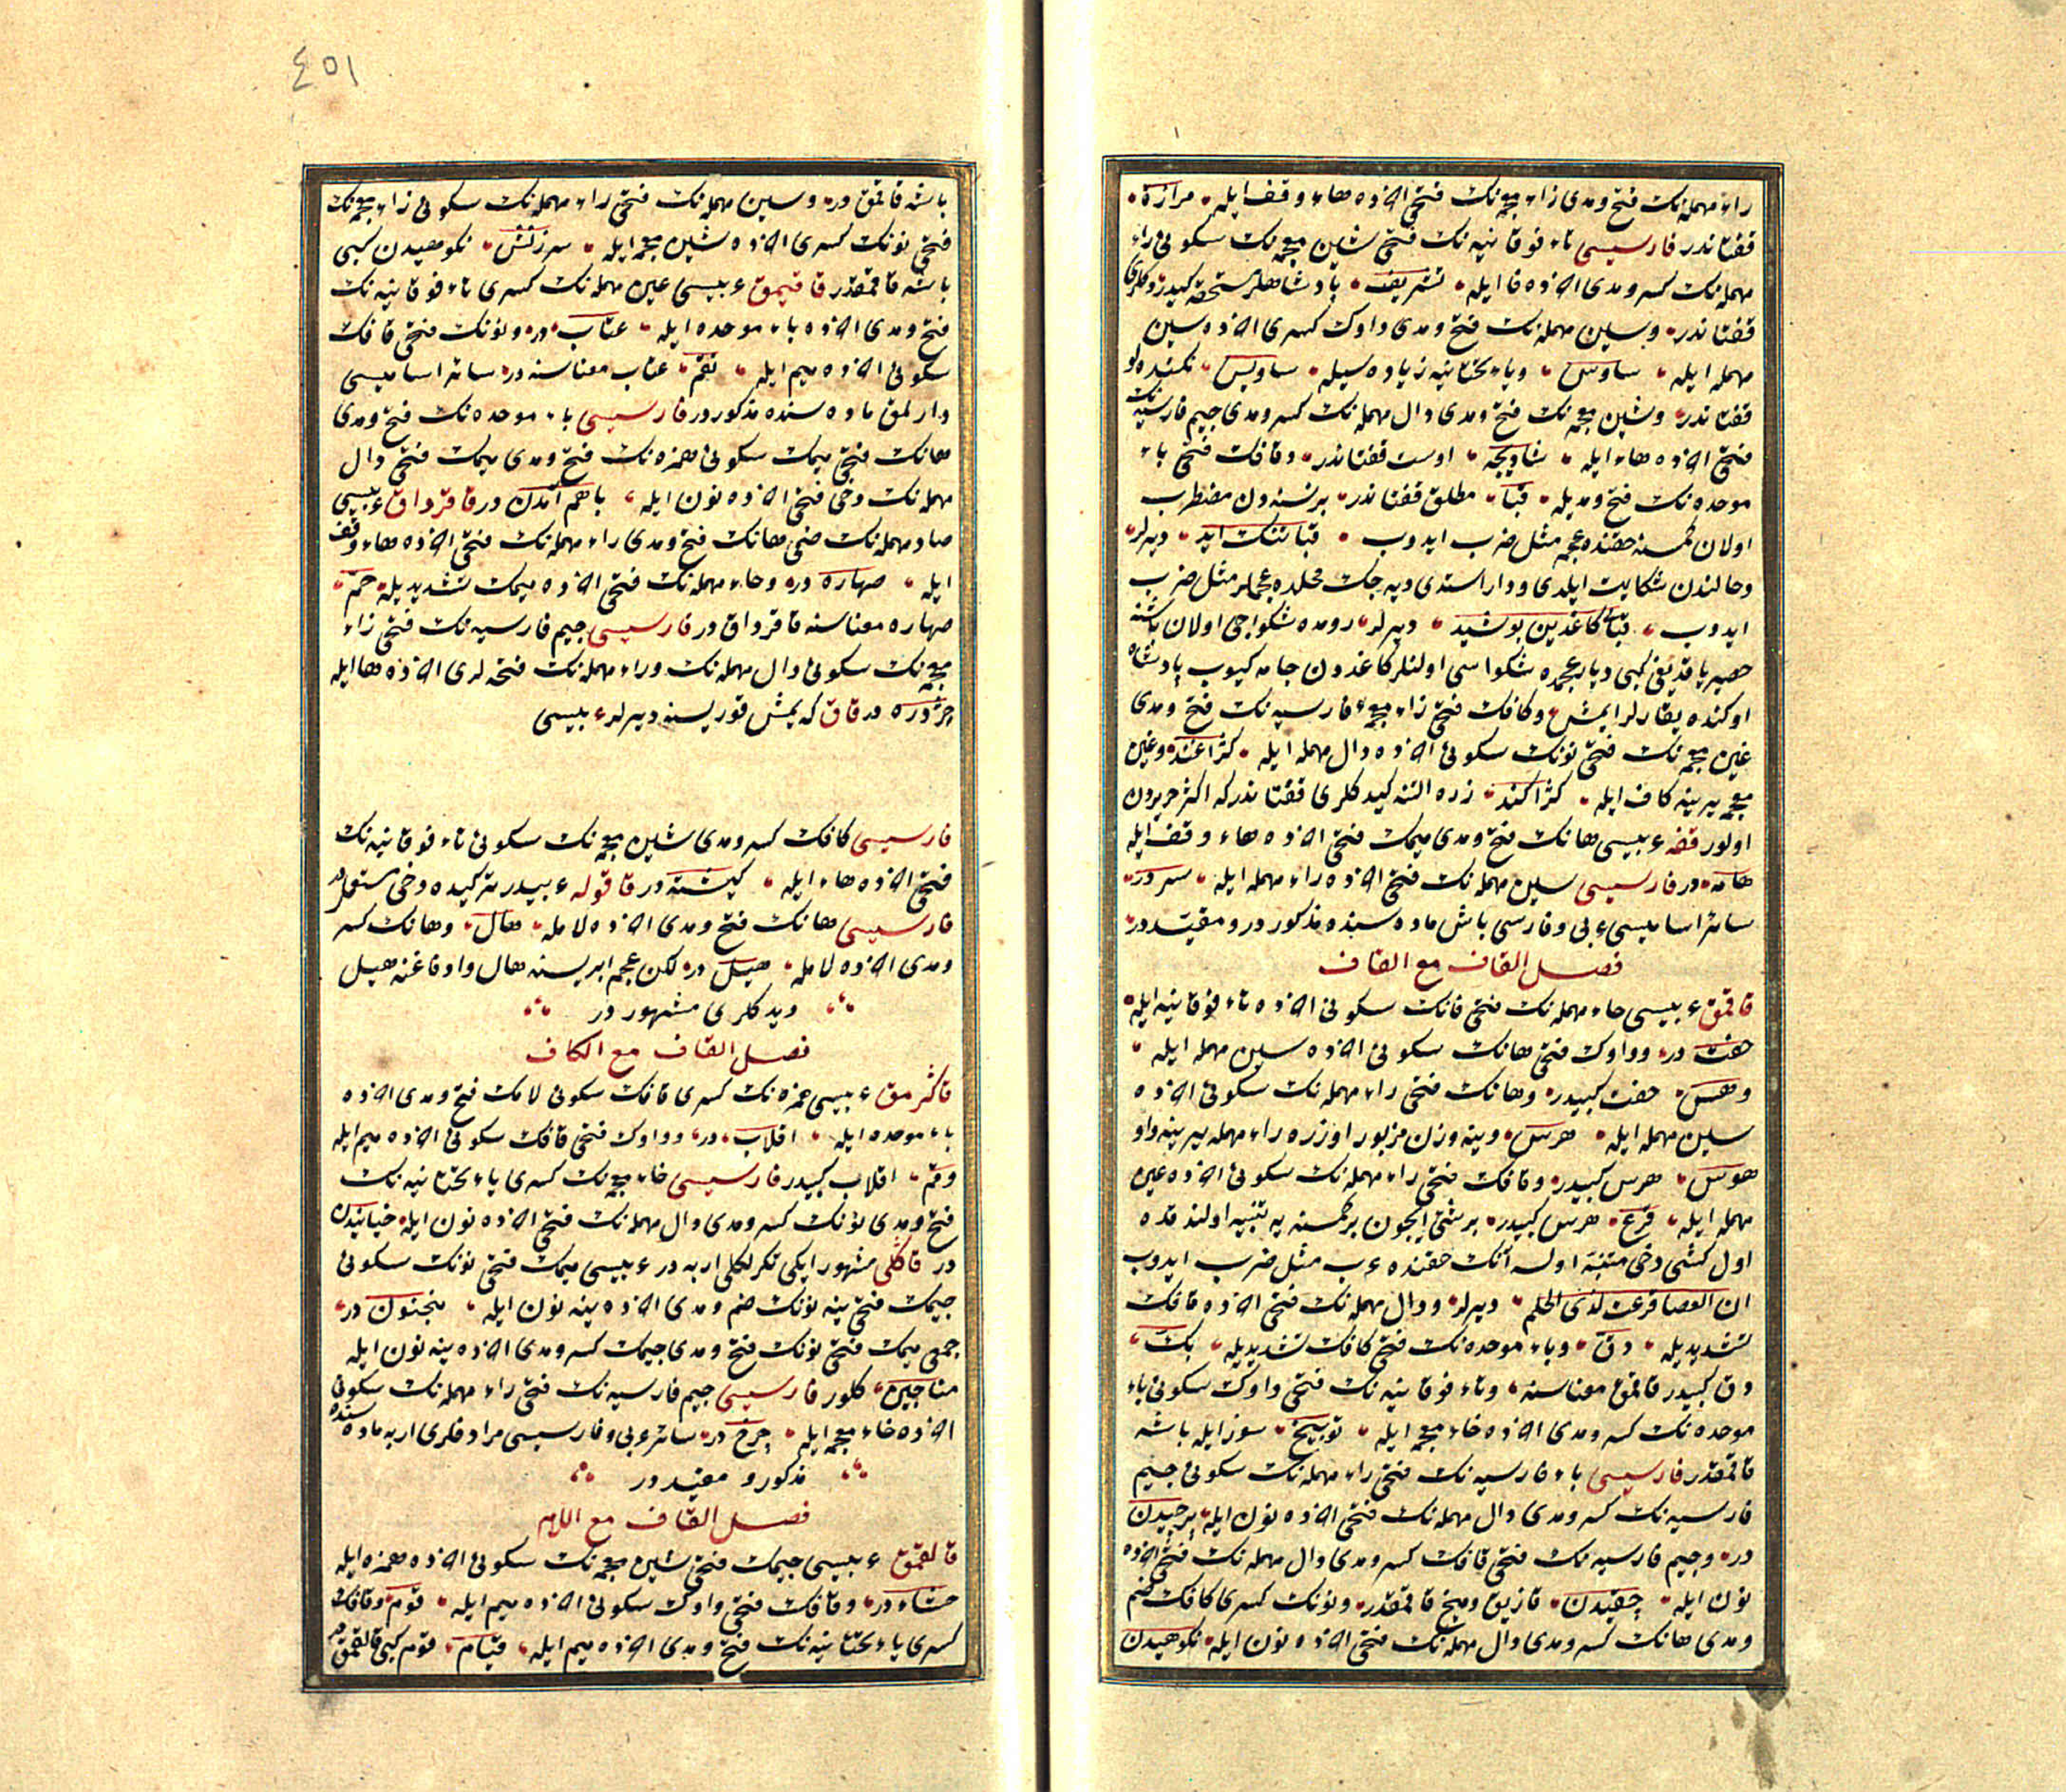 راء مهمله‌نك فتح ومدى زاء معجه‌نك فتحى اخرده هاء وقف ايله مرازة
قفتاندر فارسيسى تاء فوقانيه‌نك فتحى شين معجمه‌نك سكونى راء
مهمله‌نك كسر ومدى اخرده فا ايله تشريف پادشاهلر مستحقه كيدردكلرى
قفتاندر وسين مهمله‌نك فتح ومدى واوك كسرى اخرده سين
مهمله ايله ساوس وياء تحتانيه زياده سيله ساويس نكنده لو
قفتاندر وشين معجمه‌نك فتح ومدى دال مهمله‌نك كسر ومدى جيم فارسيه‌نك
فتحى اخرده هاء ايله شاديچه اوست قفتاندر وقافك فتحى باء
موحده‌نك فتح ومديله قبا مطلق قفتاندر برنسنه‌دن مضطرب
اولان كمسنه حقنده عجم مثل ضرب ايدوب قبا تنك ايد ديرلر
وحالندن شكايت ايلدى وداد استدى ديه‌جك محلده عجملر مثل ضرب
ايدوب قباى كاغذين پوشيد ديرلر رومده شكواجى اولان باشنه
حصير ياقديغى كبى ديار عجمده شكواسى اولنلر كاغددن جامه كيوب پادشاه
اوكنده يقارلر ايمش وكافك فتحى زاء معجمهٔ فارسيه‌نك فتح ومدى
غين معجمه‌نك فتحى نونك سكونى اخرده دال مهمله ايله كژاغند وغين
معجمه يرينه كاف ايله كژاكند زره التنه كيدكلرى قفتاندر كه اكثر حريردن
اولور قفه عربيسى هانك فتح ومدى ميمك فتحى اخرده هاء وقف ايله
هامه در فارسيسى سين مهمله‌نك فتحى اخرده راء مهمله ايله سر در
سائر اساميسى عربى وفارسى باش ماده سنده مذكور در ومقيّد در
فصل القاف مع القاف
قاقمق عربيسى حاء مهمله‌نك فتحى فانك سكونى اخرده تاء فوقانيه ايله
حفت در وواوك فتحى هانك سكونى اخرده سين مهمله ايله
وهس حفت كبيدر وهانك فتحى راء مهمله‌نك سكونى اخرده
سين مهمله ايله هرس وينه وزن مزبور اوزره راء مهمله يرينه واو
هوس هرس كبيدر وقافك فتحى راء مهمله‌نك سكونى اخرده عين
مهمله ايله قرع هرس كبيدر برشئ ايچون بر كمسنه يه تنبيه اولندقده
اول كشى دخى متنبّه اولسه آنك حقنده عرب مثل ضرب ايدوب
ان العصا قرعت لذى الحلم ديرلر ودال مهمله‌نك فتحى اخرده قافك
تشديديله دقّ وباء موحده‌نك فتحى كافك تشديديله بكّ
دق كبيدر قاقمق معناسنه وتاء فوقانيه‌نك فتحى واوك سكونى باء
موحده‌نك كسر ومدى اخرده خاء معجمه ايله توبيخ سوز ايله باشه
قاقمقدر فارسيسى باء فارسيه‌نك فتحى راء مهمله‌نك سكونى جيم
فارسيه‌نك كسر ومدى دال مهمله‌نك فتحى اخرده نون ايله پرچيدن
در وجيم فارسيه‌نك فتحى قافك كسر ومدى دال مهمله‌نك فتحى اخرده
نون ايله چقيدن قازيق وميخ قاقمقدر ونونك كسرى كافك ضم
ومدى هانك كسر ومدى دال مهمله‌نك فتحى اخرده نون ايله نكوهيدن
٤٥١
باشه قاقمق در وسين مهمله‌نك فتحى راء مهمله‌نك سكونى زاء معجمه‌نك
فتحى نونك كسرى اخرده شين معجمه ايله سرزنش نكوهيدن كبى
باشه قاقمقدر قاقيمق عربيسى عين مهمله‌نك كسرى تاء فوقانيه‌نك
فتح ومدى اخرده باء موحده ايله عتاب در ونونك فتحى قافك
سكونى اخرده ميم ايله نقم عتاب معناسنه در سائر اساميسى
دارلمق ماده سنده مذكور در فارسيسى باء موحده‌نك فتح ومدى
هانك فتحى ميمك سكونى همزه‌نك فتح ومدى ميمك فتحى دال
مهمله‌نك دخى فتحى اخرده نون ايله باهم آمدن در قاقرداق عربيسى
صاد مهمله‌نك ضمى هانك فتح ومدى راء مهمله‌نك فتحى اخرده هاء وقف
ايله صهاره در وحاء مهمله‌نك فتحى اخرده ميمك تشديديله حمّ
صهاره معناسنه قاقرداق در فارسيسى جيم فارسيه‌نك فتحى زاء
معجمه‌نك سكونى دال مهمله‌نك وراء مهمله‌نك فتحه‌لرى اخرده ها ايله
چزدره در قاق كه يمش قوريسنه ديرلر عربيسى
فارسيسى كافك كسر ومدى شين معجمه‌نك سكونى تاء فوقانيه‌نك
فتحى اخرده هاء ايله كيشته در قاقوله عربيدر تركيده دخى مستعملدر
فارسيسى هانك فتح ومدى اخرده لامله هال وهانك كسر
ومدى اخرده لامله هيل در لكن عجم ايريسنه هال واوفاغنه هيل
ديدكلرى مشهور در
فصل القاف مع الكاف
قاكثرمق عربيسى همزه‌نك كسرى قافك سكونى لامك فتح ومدى اخرده
باء موحده ايله اقلاب در وواوك فتحى قافك سكونى اخرده ميم ايله
وقم اقلاب كبيدر فارسيسى خاء معجمه‌نك كسرى ياء تحتانيه‌نك
فتح ومدى نونك كسر ومدى دال مهمله‌نك فتحى اخرده نون ايله خيانيدن
در قاكلى مشهور ايكى تكرلكلى اربه در عربيسى ميمك فتحى نونك سكونى
جيمك فتحى ينه نونك ضم ومدى اخرده ينه نون ايله منجنون در
جمعى ميمك فتحى نونك فتح ومدى جيمك كسر ومدى اخرده ينه نون ايله
مناجين كلور فارسيسى جيم فارسيه‌نك فتحى راء مهمله‌نك سكونى
اخرده خاء معجمه ايله چرخ در سائر عربى وفارسيسى مرادفلرى اربه ماده سنده
مذكور و مقيد در
فصل القاف مع اللام
قالقمق عربيسى جيمك فتحى شين معجمه‌نك سكونى اخرده همزه ايله
جشاء در وقافك فتحى واوك سكونى اخرده ميم ايله قوم وقافك
كسرى ياء تحتانيه‌نك فتح ومدى اخرده ميم ايله قيام قوم كبى قالقمقدر